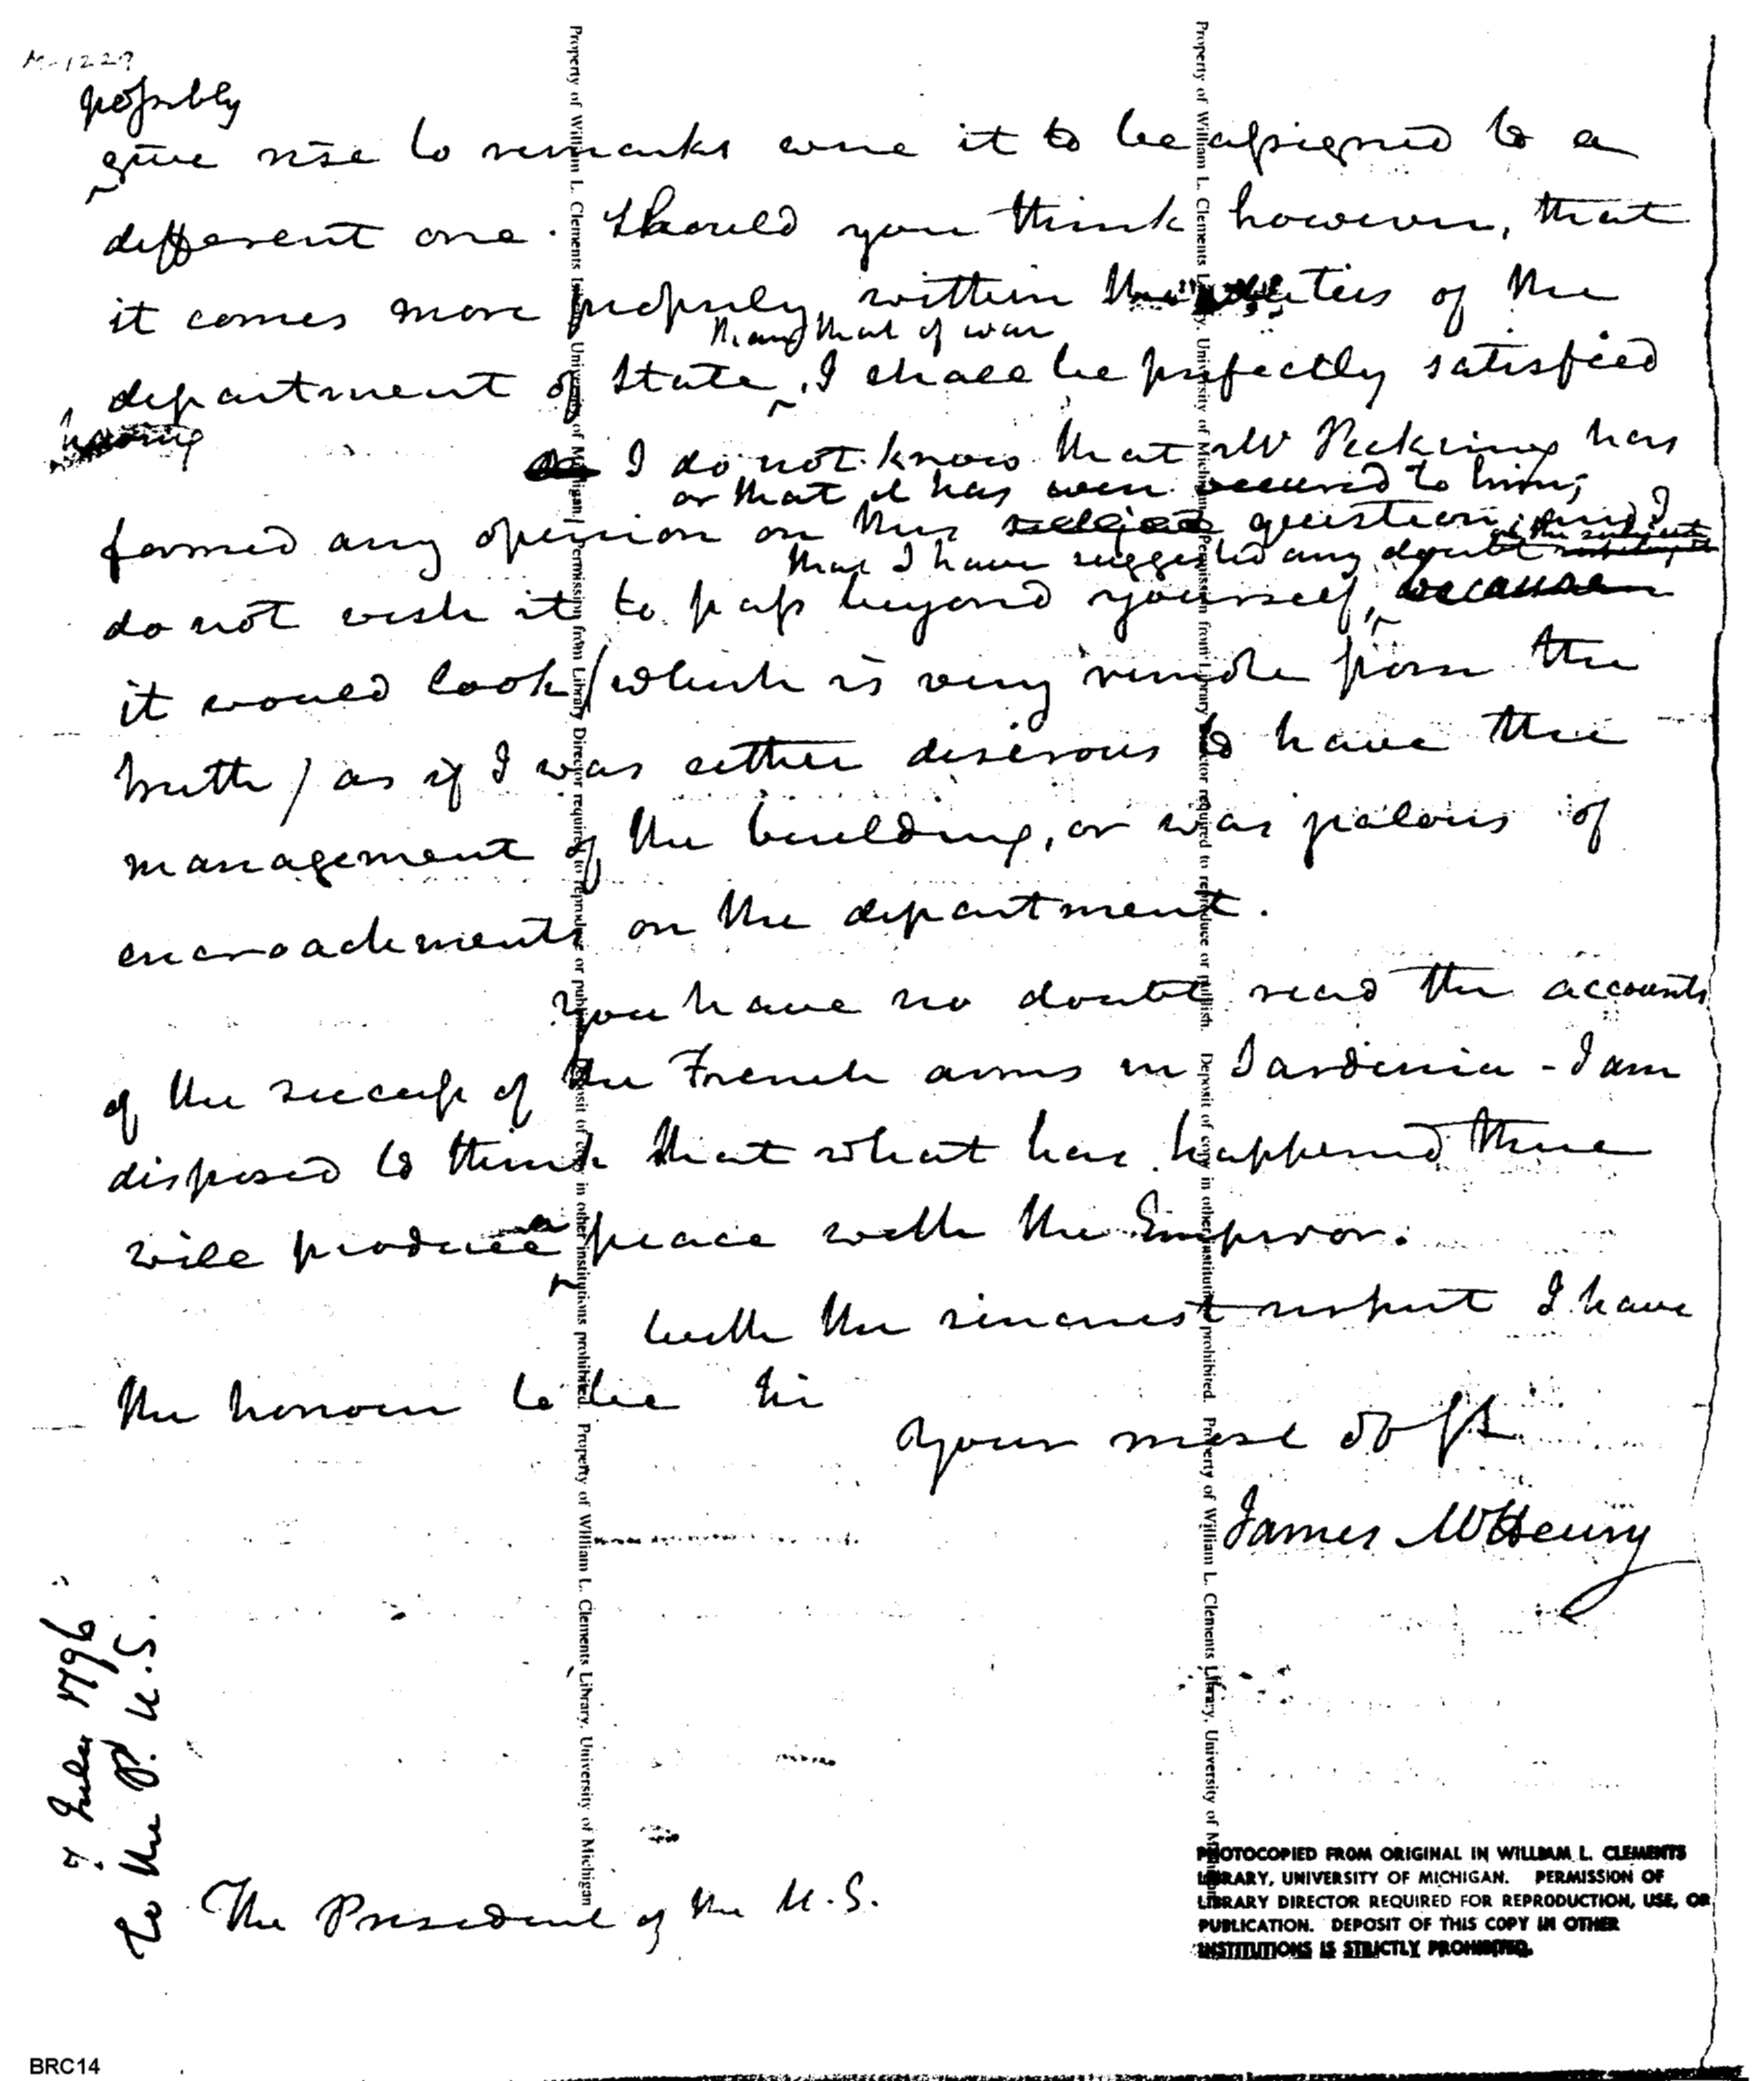 possibly
give rise to remarks were it to be assigned to a
different one. Should you think however, that
it comes more properly within the duties of the
than that of war
department of State, I shall be perfectly satisfied
having
I do not know that Mr Pickering has
or that it has even occured to him;
formed any opinion on this subject question; and I
that I have suggested any doubt on the subject
do not wish it to pass beyond yourself, because
it would look (which is very remote from the
truth) as if I was either desirous to have the
management of the building, or was jealous of
encroachments on the department.
You have no doubt read the accounts
of the success of the French arms in Sardinia - I am
disposed to think that what has happened there
will produce a peace with the Emperor.
With the sincerest respect I have
the honour to be
your most ob st
James McHenry
7 July 1796
To the P. U.S.
The President of the U.S.
Property of William L. Clements Library, University of Michigan. Permission from Library Director required to reproduce or publish. Deposit of copy in other institutions prohibited. Property of William L. Clements Library, University of Michigan
Property of William L. Clements Library, University of Michigan. Permission from Library Director required to reproduce or publish. Deposit of copy in other institutions prohibited. Property of William L. Clements Library, University of Michigan
PHOTOCOPIED FROM ORIGINAL IN WILLIAM L. CLEMENTS
LIBRARY, UNIVERSITY OF MICHIGAN. PERMISSION OF
LIBRARY DIRECTOR REQUIRED FOR REPRODUCTION, USE, OR
PUBLICATION. DEPOSIT OF THIS COPY IN OTHER
INSTITUTIONS IS STRICTLY PROHIBITED.
BRC14